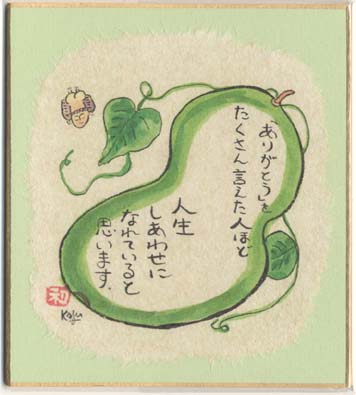 「ありがとう」を
たくさん言えた人ほど
人生
しあわせに
なれていると
思います。
和